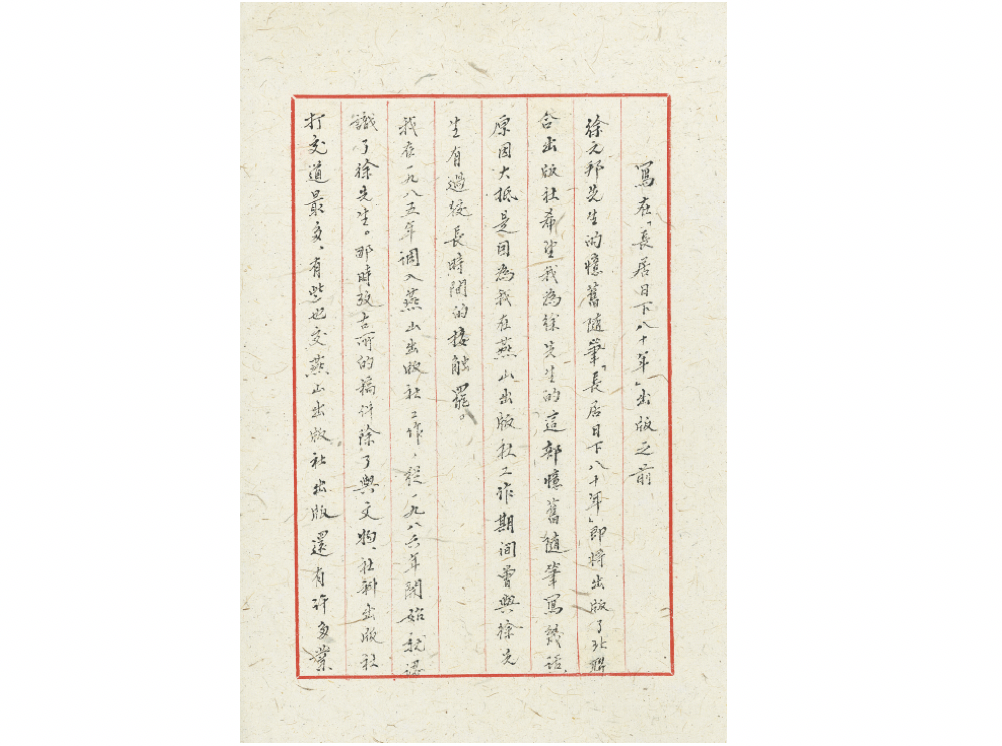 寫在「長居日下八十年」出版之前
徐元邦先生的憶舊隨筆「長居日下八十年」即將出版了北聯
合出版社希望我為徐先生的這部憶舊隨筆寫幾話
原因大抵是因為我在燕山出版社工作期间曾與徐先
生有過较長時間的接触罷。
我在一九八五年调入燕山出版社工作，從一九八六年開始就認
識了徐先生。那時攷古所的稿件除了與文物、社科出版社
打交道最多、有些也交燕山出版社出版還有许多業